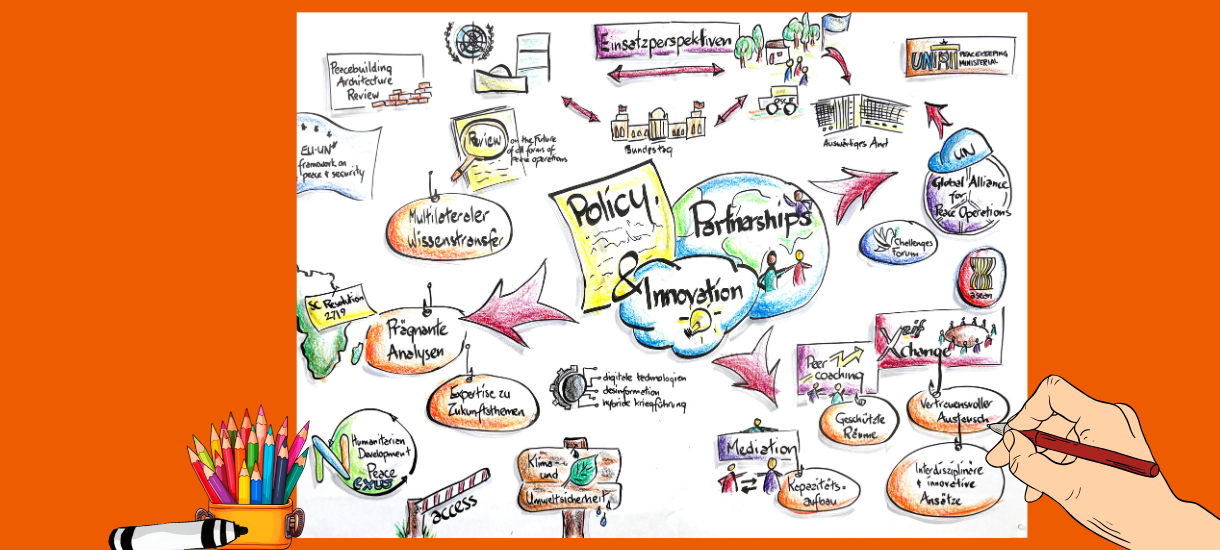 Einsatzperspektiven
Peacebuilding
Architecture
Review
UN
PEACEKEEPING
MINISTERIAL
EU-UN
framework on
peace & security
Review
on the Future
of all forms of
peace operations
Bundestag
Auswärtiges Amt
UN
Global Alliance
for
Peace Operations
Multilateraler
Wissenstransfer
Policy,
Partnerships
& Innovation
Challenges
Forum
asean
SC Resolution
2719
Prägnante
Analysen
Expertise zu
Zukunftsthemen
digitale technologien
desinformation
hybride kriegführung
Peer
coaching
zif
Xchange
Geschützte
Räume
Vertrauensvoller
Austausch
Humanitarian
Development
Peace
Nexus
access
Klima-
und
Umweltsicherheit
Mediation
Kapazitäts=
aufbau
Interdisziplinäre
+ innovative
Ansätze